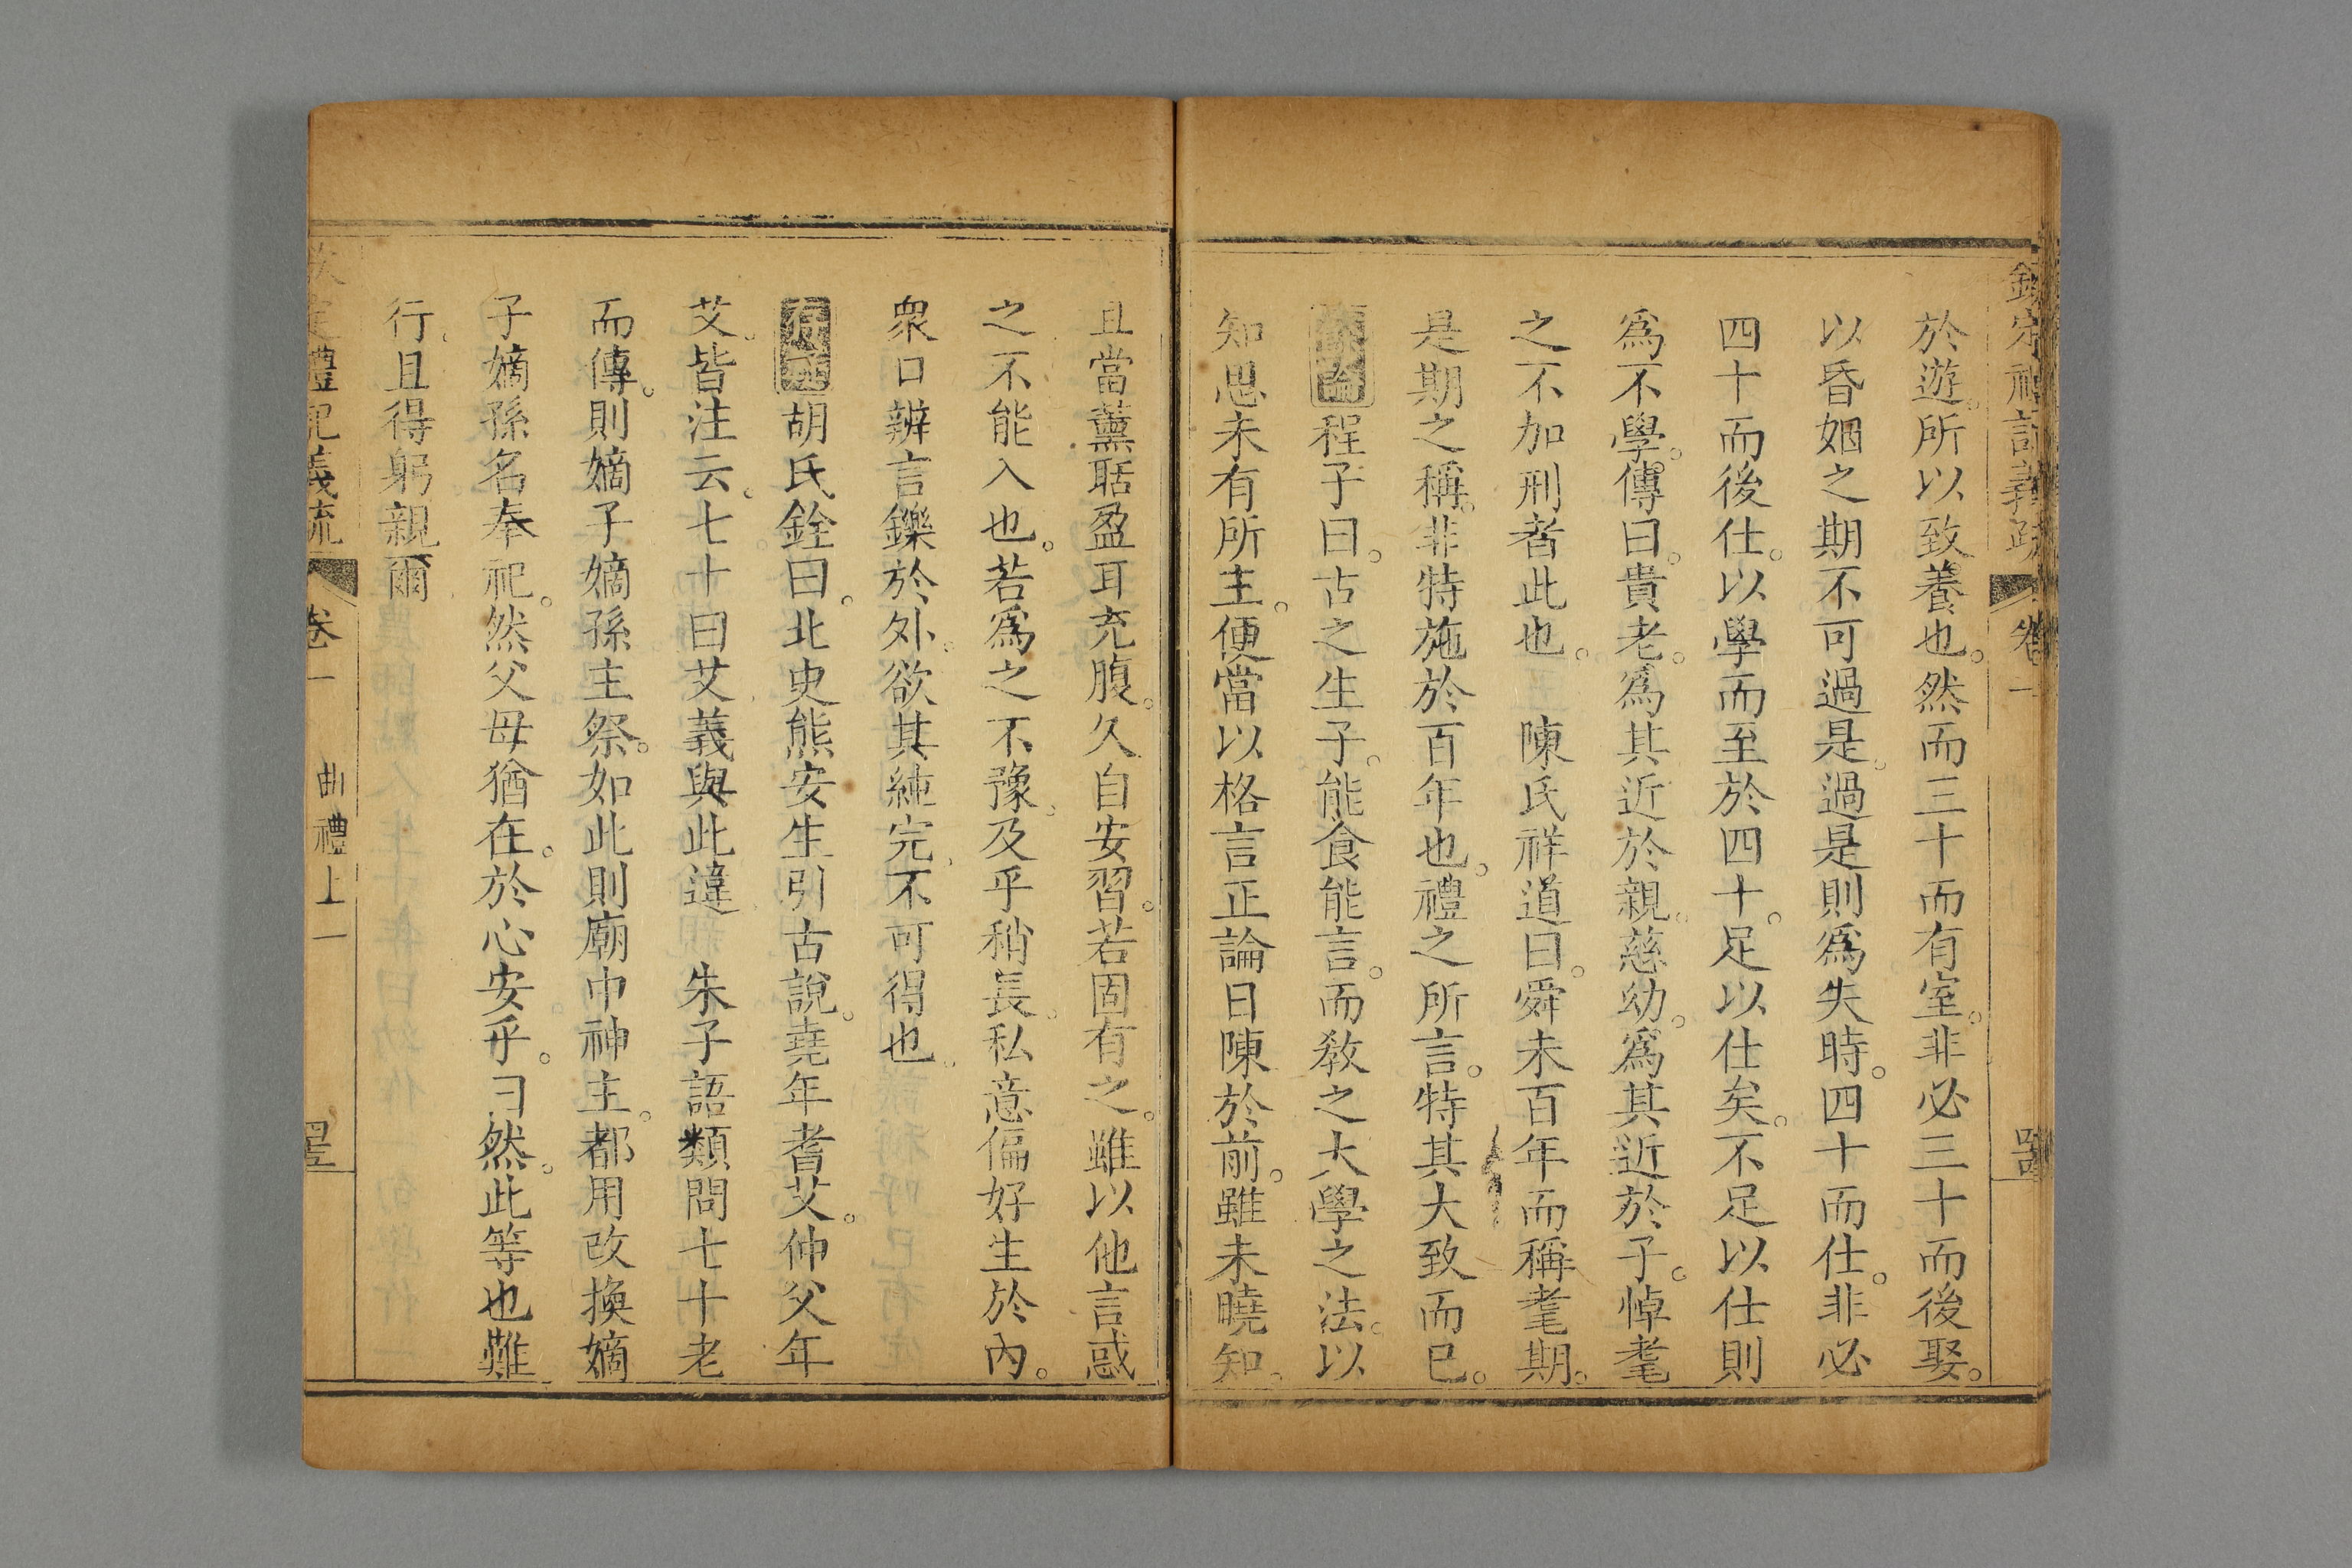 欽定禮記義疏 卷一 四
於遊。所以致養也。然而三十而有室。非必三十而後娶。
以昏姻之期不可過是。過是則爲失時。四十而仕。非必
四十而後仕。以學而至於四十。足以仕矣。不足以仕則
爲不學。傳曰。貴老。爲其近於親。慈幼。爲其近於子。悼耄
之不加刑者此也。 陳氏祥道曰。舜未百年而稱耄期。
是期之稱。非特施於百年也。禮之所言。特其大致而已。
程子曰。古之生子。能食能言。而敎之大學之法。以
知思未有所主。便當以格言正論日陳於前。雖未曉知。
且當薰聒盈耳充腹。久自安習。若固有之。雖以他言惑
之不能入也。若爲之不豫。及乎稍長。私意偏好生於內。
衆口辨言鑠於外。欲其純完。不可得也。
存疑胡氏銓曰。北史熊安生引古說。堯年耆艾。仲父年
艾。皆注云。七十曰艾義與此違 朱子語類問七十老
而傳。則嫡子嫡孫主祭。如此則廟中神主。都用改換嫡
子嫡孫名奉祀。然父母猶在。於心安乎。曰然。此等也難
行。且得躬親爾
禮記義疏 卷一 曲禮上一